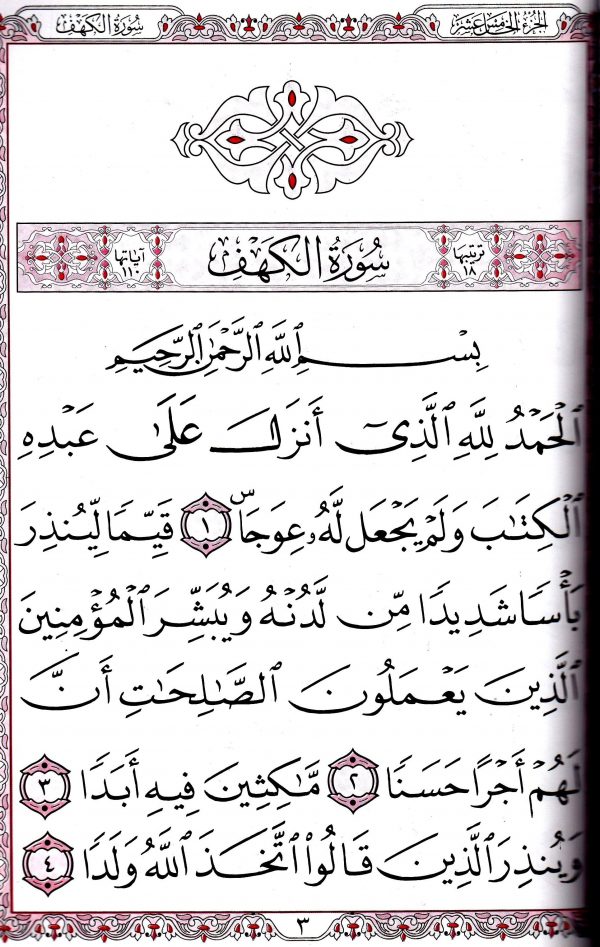 الجزء الخامس عشر
سورة الكهف
ترتيبها ١٨
سورة الكهف
آياتها ١١٠
بِسْمِ ٱللَّهِ ٱلرَّحْمَٰنِ ٱلرَّحِيمِ
ٱلْحَمْدُ لِلَّهِ ٱلَّذِىٓ أَنزَلَ عَلَىٰ عَبْدِهِ
ٱلْكِتَٰبَ وَلَمْ يَجْعَل لَّهُۥ عِوَجَاۜ ١ قَيِّمًا لِّيُنذِرَ
بَأْسًا شَدِيدًا مِّن لَّدُنْهُ وَيُبَشِّرَ ٱلْمُؤْمِنِينَ
ٱلَّذِينَ يَعْمَلُونَ ٱلصَّٰلِحَٰتِ أَنَّ
لَهُمْ أَجْرًا حَسَنًا ٢ مَّٰكِثِينَ فِيهِ أَبَدًا ٣
وَيُنذِرَ ٱلَّذِينَ قَالُوا۟ ٱتَّخَذَ ٱللَّهُ وَلَدًا ٤
٣